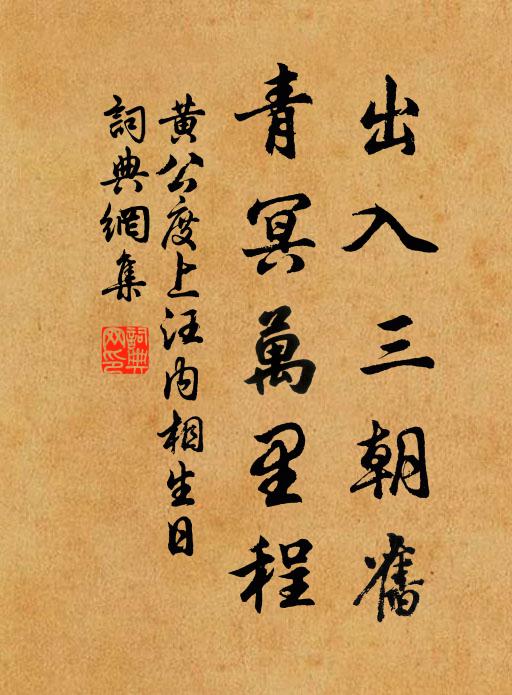 出入三朝舊
青冥萬里程
黃公度上汪內相生日
詞典網集
詞典網印